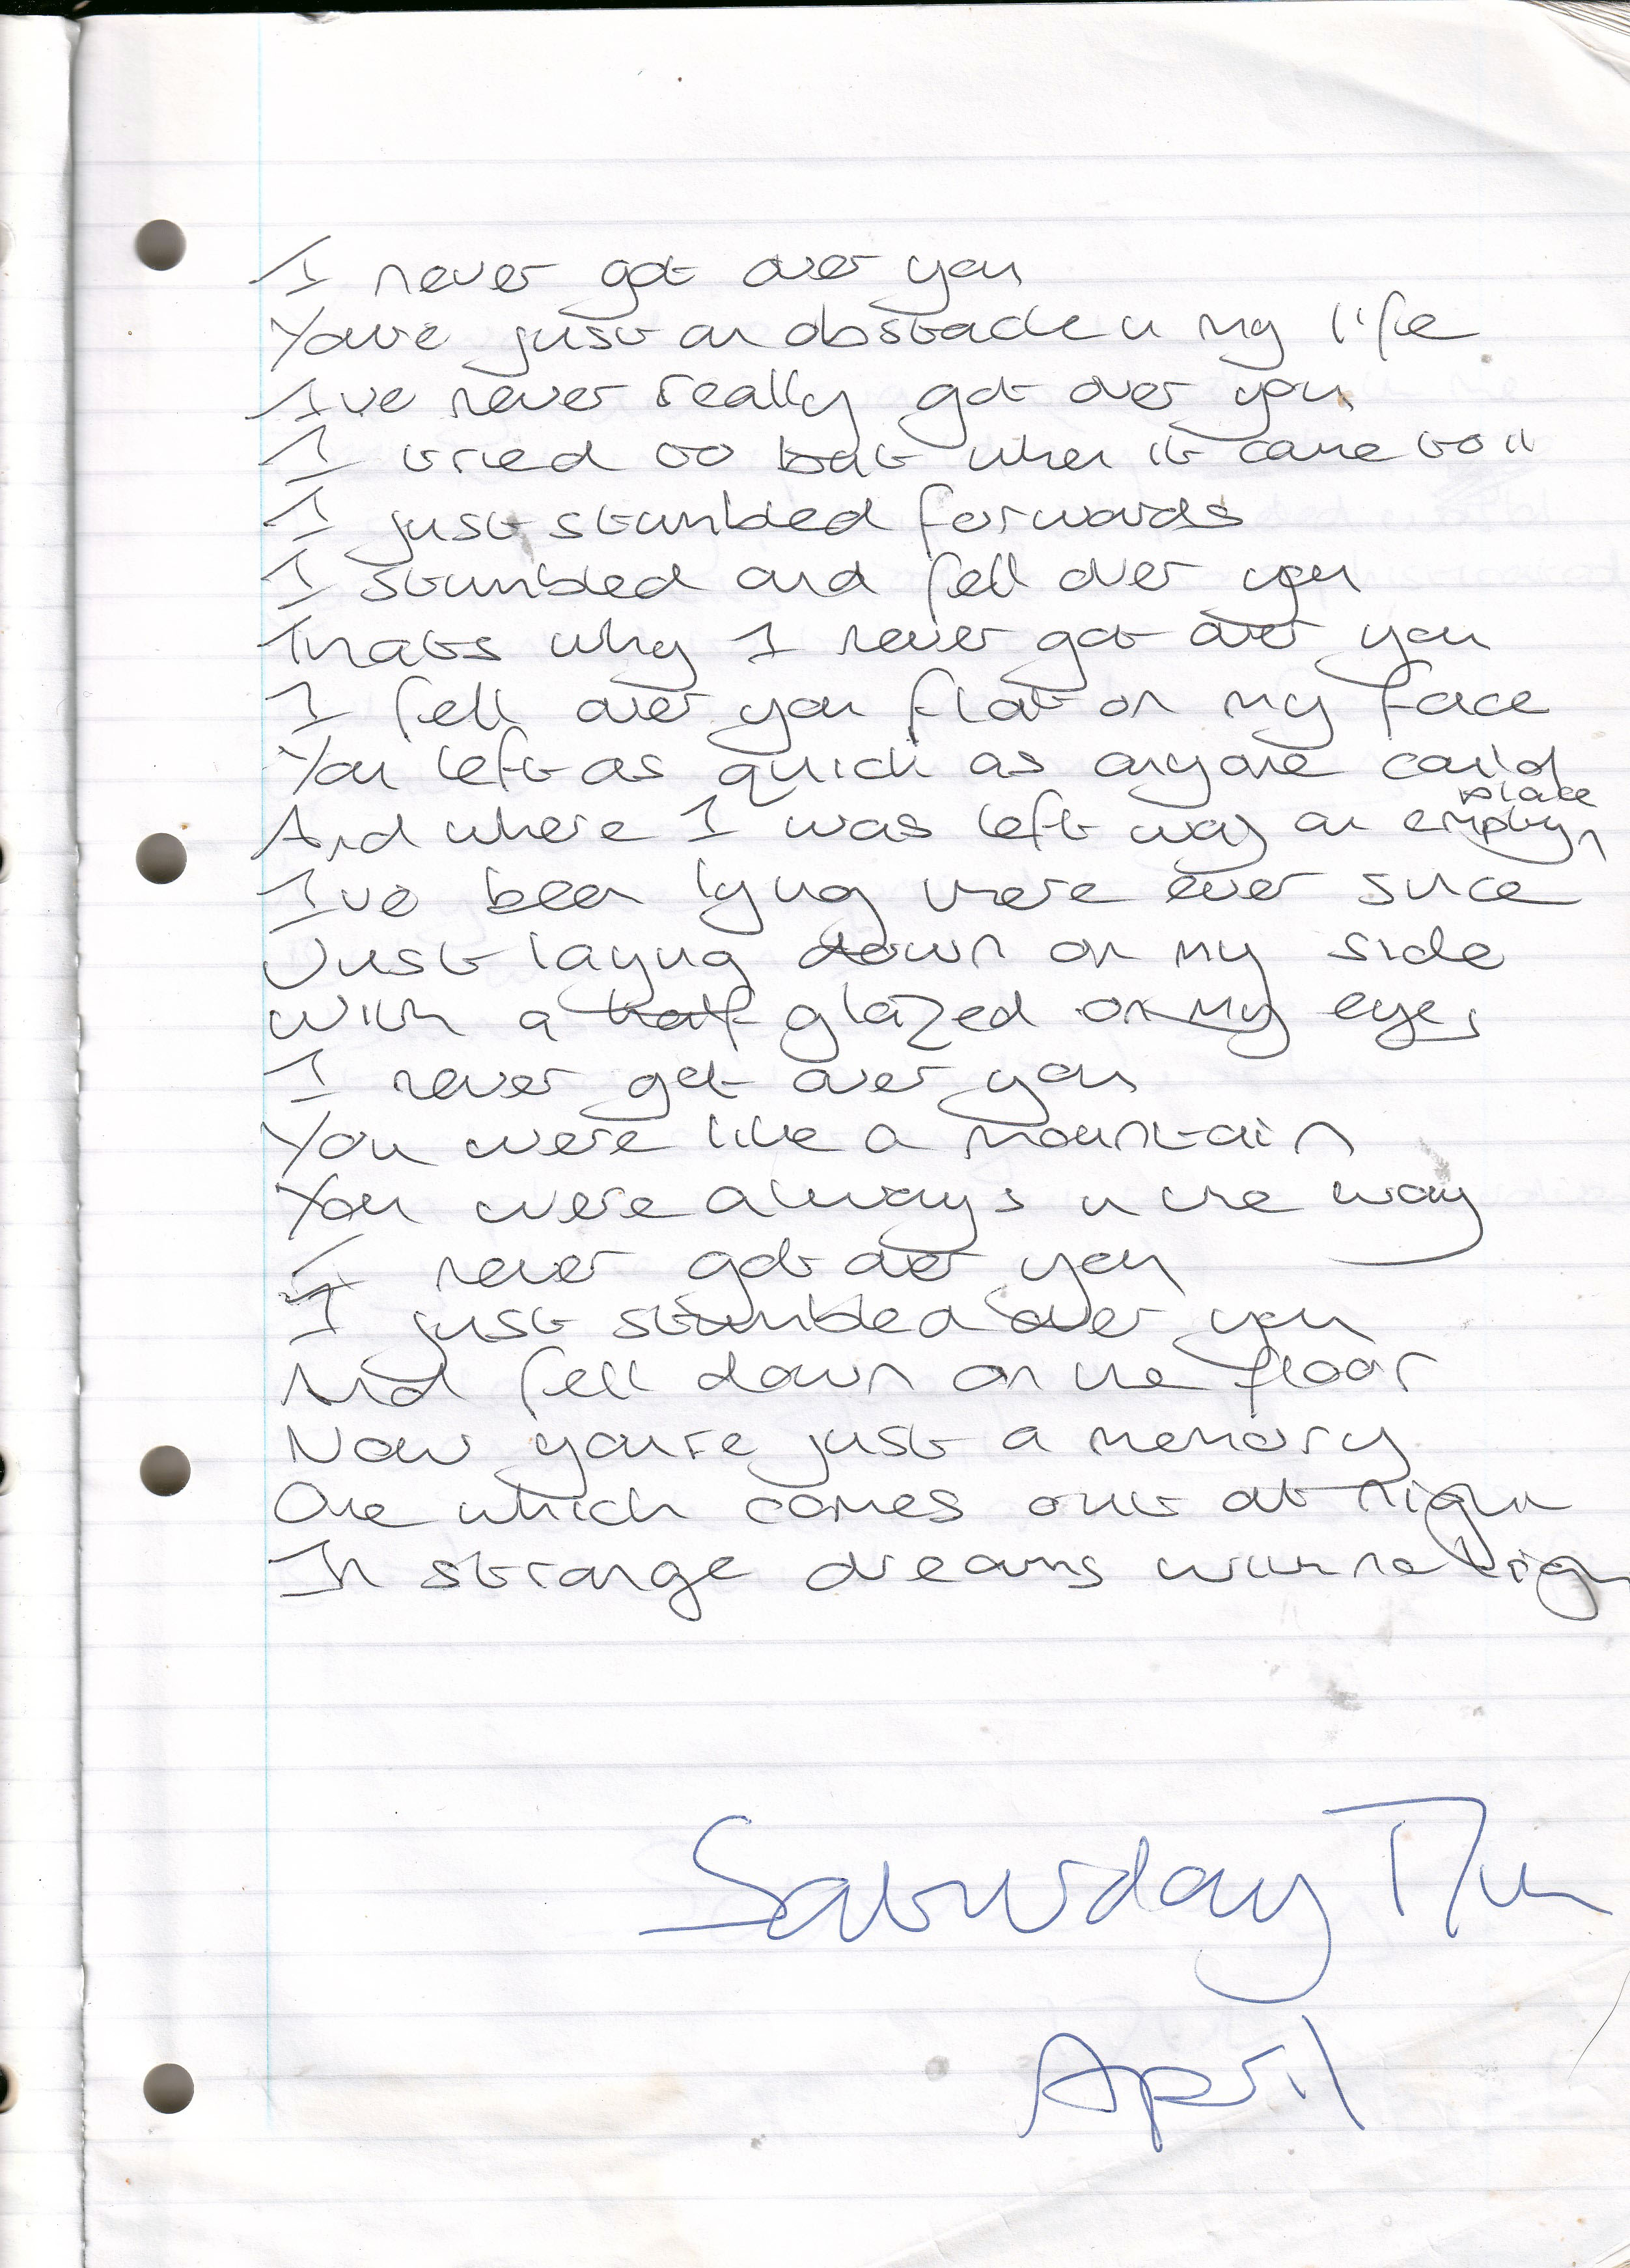 I never got over you
Youre just an obstacle in my life
Ive never really got over you
I tried to but when it came to it
I just stumbled forwards
I stumbled and fell over you
Thats why I never got over you
I fell over you flat on my face
You left as quick as anyone could
And where I was left was an empty place
Ive been lying there ever since
Just laying down on my side
With a half glazed on my eyes
I never got over you
You were like a mountain
You were always in the way
I never got over you
I just stumbled over you
And fell down on the floor
Now youre just a memory
One which comes out at night
In strange dreams with no
Saturday
April